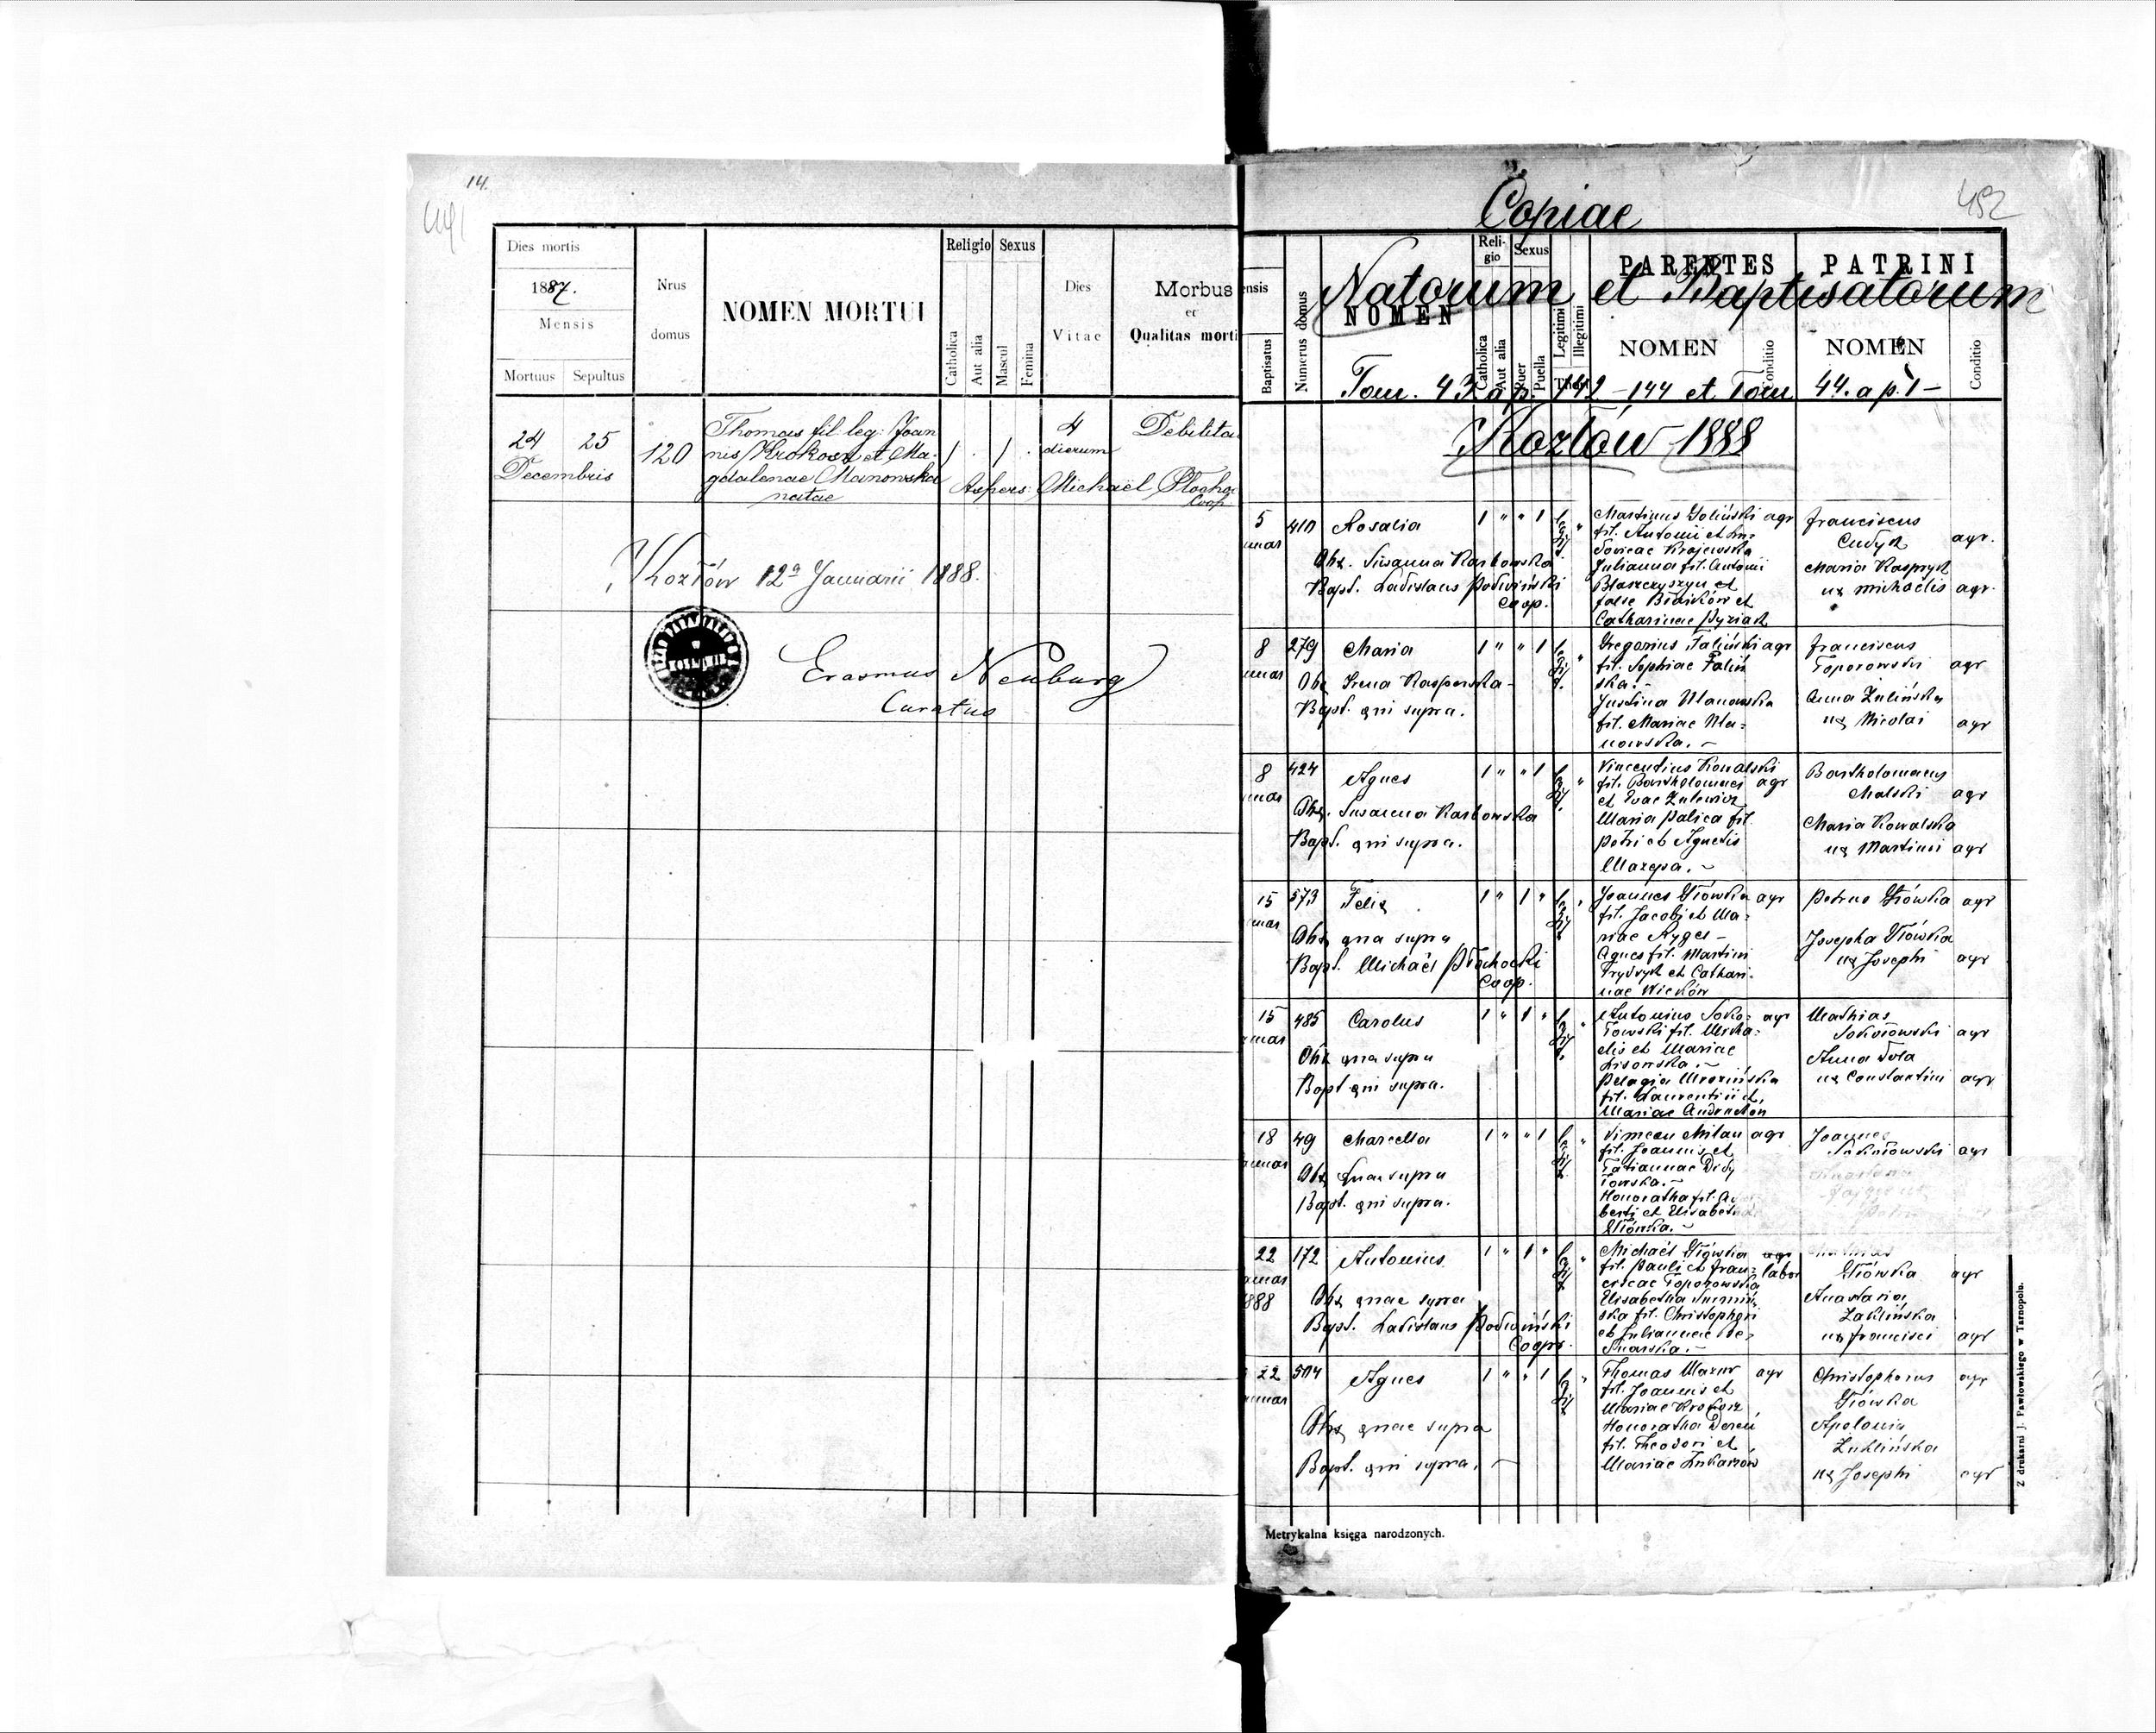 14.
441
Dies mortis
1887.
Mensis
Mortuus
Sepultus
Nrus
domus
NOMEN MORTUI
Religio
Catholica
Aut alia
Sexus
Mascul
Femina
Dies
Vitae
Morbus
et
Qualitas morti
24 25
Decembris
120
Thomas fil. leg. Joan
nis Krokosz et Ma-
gdalenae Manowska
natae
1 . 1 .
4
dierum
Debilita
Aspers: Michaël Płocho
Coop
Kozłów 12a Januarii 1888.
Erasmus Neuburg
Curatus
452
Copiae
Natorum et Baptisatorum
Tom. 43 a p. 142-144 et Tom 44. a p. 1-
Kozłów 1888
ensis
Baptisatus
Numerus domus
NOMEN
Reli-
gio
Catholica
Aut alia
Sexus
Puer
Puella
Legitimi
Illegitimi
Thori
PARENTES
NOMEN
Conditio
PATRINI
NOMEN
Conditio
5
nuar
410
Rosalia
1 " " 1
Obs. Susanna Karbowska
Bapt. Ladislaus Podwiński
Coop.
Martinus Goliński agr
fil. Antonii et
Krajewska
Julianna fil. Antonii
Błaszczyszyn et
Catharinae Pyziak
Franciscus
agr.
Maria Kasprzyk
ux Michaelis agr.
8
nuar
279
Maria
1 " " 1
Obs Irena Kasperska
Bapt. qui supra.
Gregorius Faliński agr
fil. Sophiae Faliń
ska.-
Justina Ulanowska
fil. Mariae Ula-
nowska.-
Franciscus
Toporowski agr
Anna Zulińska
ux Nicolai agr
8
nuar
424
Agnes
1 " " 1
Obs. Susanna Karbowska
Bapt. qui supra.
Vincentius Kowalski
fil. Bartholomaei agr
et Evae Zulewicz
Maria Palica fil.
Petri et Agnetis
Mazepa.-
Bartholomaeus
Malski agr
Maria Kowalska
ux Martini agr
15
nuar
573
Felix
1 " 1 "
Obs qua supra
Bapt. Michaël Płochocki
Coop.
Joannes Główka agr
fil. Jacobi et Ma-
riae Ryges-
Agnes fil. Martini
Frydryk et Cathari-
nae Wicków
Petrus Główka agr
Josepha Główka
ux Josephi agr
15
nuar
485
Carolus
1 " 1 "
Obs qua supra
Bapt qui supra.
Antonius Soko- agr
łowski fil. Micha-
elis et Mariae
Lisowska.-
Pelagia Mrozińska
fil. Laurentii et
Mariae
Mathias
Sokołowski agr
Anna
ux Constantini agr
18
nuar
49
Marcella
1 " " 1
Obs quae supra
Bapt. qui supra.
Simeon Milan agr
fil. Joannis et
Tatiannae Didy
łowska.-
Honoratha fil.
berti et Elisabeth
Główka.-
Joannes
Sokołowski agr
22
nuar
888
172
Antonius
1 " 1 "
Obs quae supra
Bapt. Ladislaus Podwiński
Coopr.
Michaël Główka agr
fil. Pauli et Fran- labor
ciscae Toporowska
Elisabetha
ska fil. Christophori
et Juliannae
Główka agr
Anastasia
Zaklińska
ux Francisci agr
22
nuar
504
Agnes
1 " " 1
Obs quae supra
Bapt. qui supra.
Thomas Mazur agr
fil. Joannis et
Mariae Krokosz
Honoratha Dereń
fil. Theodori et
Mariae
Christophorus agr
Główka
Apolonia
Zaklińska
ux Josephi agr
Metrykalna księga narodzonych.
Z drukarni J. Pawłowskiego w Tarnopolu.